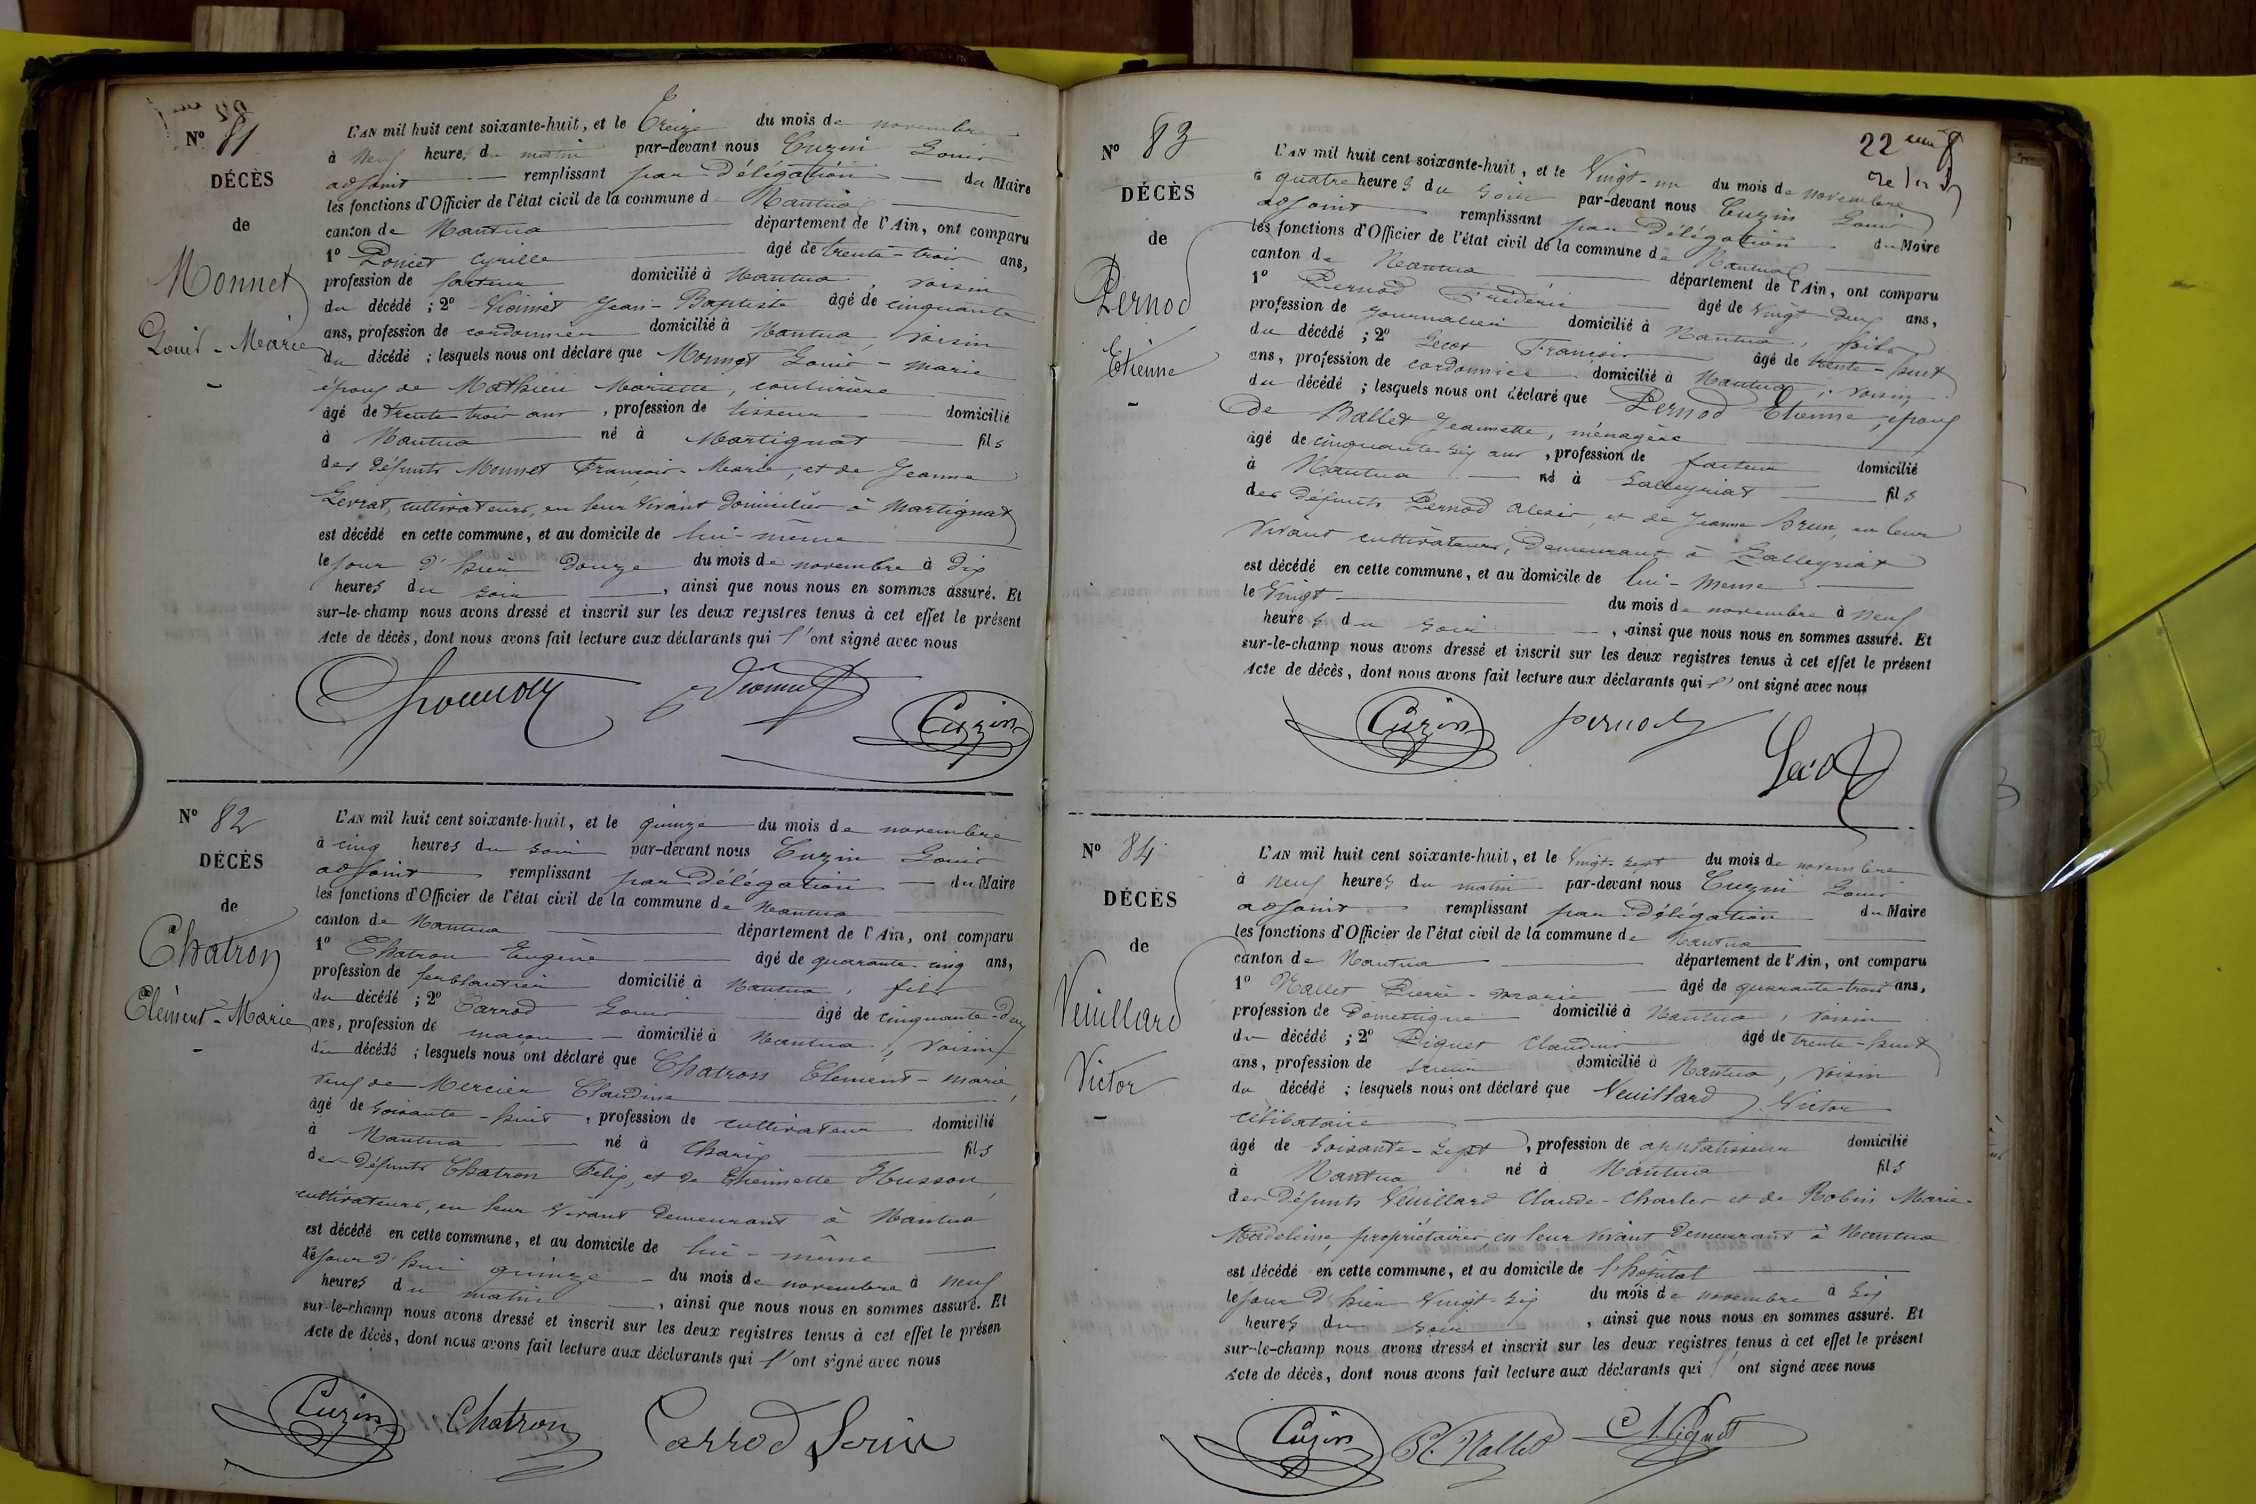 N° 81
DÉCÈS
de
Monnet
Louis-Marie
L'AN mil huit cent soixante-huit, et le Treize du mois de novembre
à neuf heures du matin par-devant nous Cuzin Louis
adjoint remplissant par Délégation du Maire
les fonctions d'Officier de l'état civil de la commune de Nantua
canton de Nantua département de l'Ain, ont comparu
1° Poncet Cyrille âgé de trente-trois ans,
profession de facteur domicilié à Nantua, voisin
du décédé ; 2° Vionnet Jean-Baptiste âgé de cinquante
ans, profession de cordonnier domicilié à Nantua, voisin
du décédé ; lesquels nous ont déclaré que Monnet Louis-marie
époux de Mathieu Mariette, couturière
âgé de trente-trois ans, profession de tisseur domicilié
à Nantua né à Martignat fils
des défunts Monnet François-Marie, et de Jeanne
Levrat, cultivateurs, en leur vivant domiciliés à Martignat
est décédé en cette commune, et au domicile de lui-même
le jour d'hier douze du mois de novembre à dix
heures du soir, ainsi que nous nous en sommes assuré. Et
sur-le-champ nous avons dressé et inscrit sur les deux registres tenus à cet effet le présent
Acte de décès, dont nous avons fait lecture aux déclarants qui l'ont signé avec nous
Vionnet
Cuzin
N° 82
DÉCÈS
de
Chatron
Clément-Marie
L'AN mil huit cent soixante-huit, et le quinze du mois de novembre
à cinq heures du soir par-devant nous Cuzin Louis
adjoint remplissant par Délégation du Maire
les fonctions d'Officier de l'état civil de la commune de Nantua
canton de Nantua département de l'Ain, ont comparu
1° Chatron Eugène âgé de quarante-cinq ans,
profession de ferblantier domicilié à Nantua, fils
du décédé ; 2° Carrod Louis âgé de cinquante-deux
ans, profession de maçon domicilié à Nantua, voisin
du décédé ; lesquels nous ont déclaré que Chatron Clement-marie,
veuf de Mercier Claudine
âgé de soixante-huit, profession de cultivateur domicilié
à Nantua né à Charix fils
des défunts Chatron Felix, et de Theinette Husson,
cultivateurs, en leur vivant demeurant à Nantua
est décédé en cette commune, et au domicile de lui-même
le jour d'hui quinze du mois de novembre à neuf
heures du matin, ainsi que nous nous en sommes assuré. Et
sur-le-champ nous avons dressé et inscrit sur les deux registres tenus à cet effet le présen
Acte de décès, dont nous avons fait lecture aux déclarants qui l'ont signé avec nous
Cuzin Chatron Carrod
22
N° 83
DÉCÈS
de
Pernod
Etienne
L'AN mil huit cent soixante-huit, et le Vingt-un du mois de novembre
à quatre heures du soir par-devant nous Cuzin Louis
adjoint remplissant par Délégation du Maire
les fonctions d'Officier de l'état civil de la commune de Nantua
canton de Nantua département de l'Ain, ont comparu
1° Pernod Frédéric âgé de vingt-deux ans,
profession de journalier domicilié à Nantua, fils
du décédé ; 2° Secot François âgé de trente-huit
ans, profession de cordonnier domicilié à Nantua, voisin
du décédé ; lesquels nous ont déclaré que Pernod Etienne, époux
de Ballet Jeannette, ménagère
âgé de cinquante-six ans, profession de facteur domicilié
à Nantua né à Lalleyriat fils
des défunts Pernod Alexis, et de Jeanne Brun, en leur
vivant cultivateurs, demeurant à Lalleyriat
est décédé en cette commune, et au domicile de lui-meme
le Vingt du mois de novembre à neuf
heures du soir, ainsi que nous nous en sommes assuré. Et
sur-le-champ nous avons dressé et inscrit sur les deux registres tenus à cet effet le présent
Acte de décès, dont nous avons fait lecture aux déclarants qui l'ont signé avec nous
Cuzin pernod
Secot
N° 84
DÉCÈS
de
Veuillard
Victor
L'AN mil huit cent soixante-huit, et le Vingt-sept du mois de novembre
à neuf heures du matin par-devant nous Cuzin Louis
adjoint remplissant par Délégation du Maire
les fonctions d'Officier de l'état civil de la commune de Nantua
canton de Nantua département de l'Ain, ont comparu
1° Nallet Pierre-marie âgé de quarante-trois ans,
profession de domestique domicilié à Nantua, voisin
du décédé ; 2° Piquet Claudius âgé de trente-huit
ans, profession de scieur domicilié à Nantua, voisin
du décédé ; lesquels nous ont déclaré que Veuillard Victor
célibataire
âgé de soixante-sept, profession de applatisseur domicilié
à Nantua né à Nantua fils
des défunts Veuillard Claude-Charles et de Robin Marie-
Madeleine, propriétaires, en leur vivant demeurant à Nantua
est décédé en cette commune, et au domicile de l'hôpital
le jour d'hier vingt-six du mois de novembre à six
heures du soir, ainsi que nous nous en sommes assuré. Et
sur-le-champ nous avons dressé et inscrit sur les deux registres tenus à cet effet le présent
Acte de décès, dont nous avons fait lecture aux déclarants qui l'ont signé avec nous
Cuzin Nallet